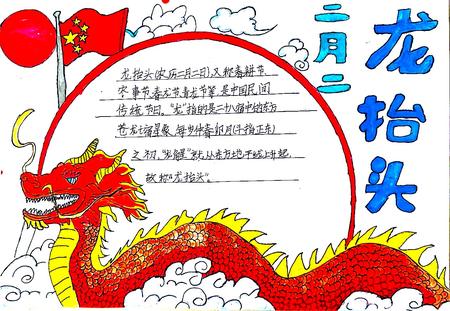 二月二
龙抬头
龙抬头(农历二月二日),又称春耕节、
农事节、春龙节、青龙节等,是中国民间
传统节日。“龙”指的是二十八宿中的东方
苍龙七宿星象,每岁仲春卯月(斗指正东)
之初,“龙角星”就从东方地平线上升起,
故称“龙抬头”。